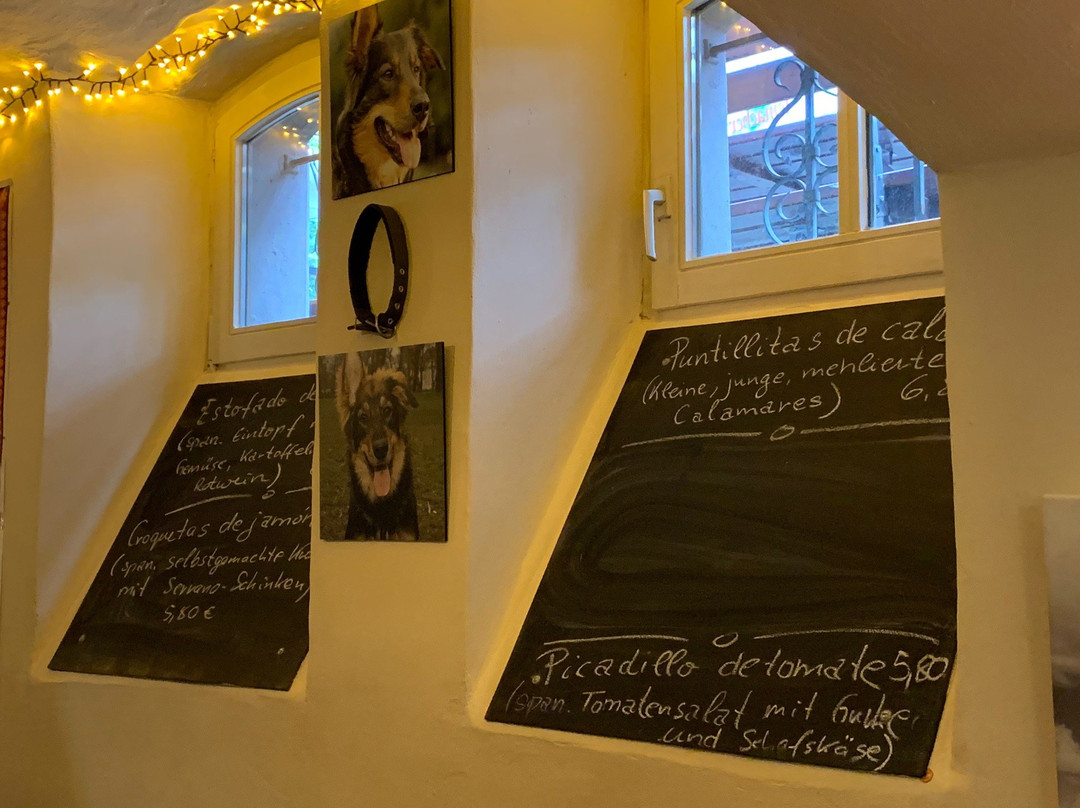 Estofado de
(span. Eintopf
Gemüse, Kartoffel
Rotwein)
Croquetas de jamón
(span. selbstgemachte
mit Serrano-Schinken)
5,80 €
Puntillitas de
(Kleine, junge, mehlierte
Calamares) 6,
Picadillo de tomate 5,80
(span. Tomatensalat mit Gurke,
und Schafskäse)